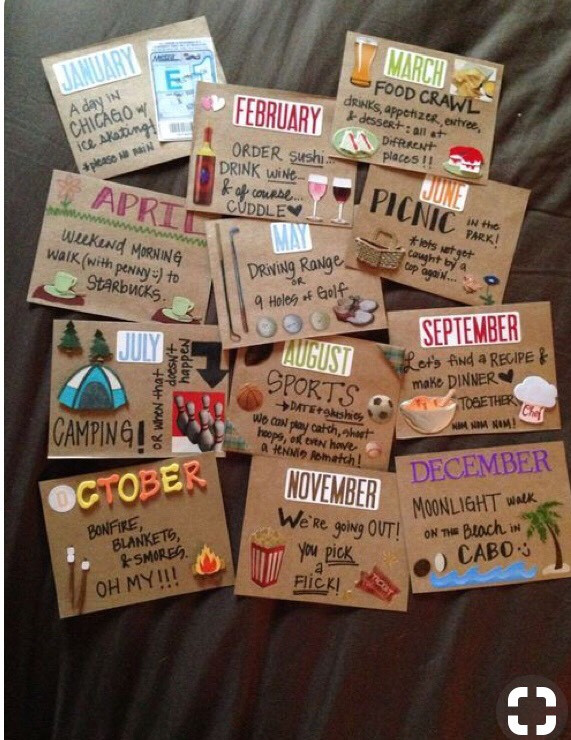 JANUARY
A day in
CHICAGO w/
ice skating!
*please no rain
E
FEBRUARY
ORDER sushi...
DRINK wine...
& of course...
CUDDLE♥
MARCH
FOOD CRAWL
drinks, appetizer, entree,
& dessert: all at
Different
places!!
APRIL
Weekend MORNING
walk (with penny :) to
STARBUCKS.
MAY
DRIVING RANGE
OR
9 Holes of Golf
JUNE
PICNIC IN the
PARK!
*lots not get
caught by a
cop again...
JULY
CAMPING!
OR when that
doesn't
happen
AUGUST
SPORTS
→DATE + slushies
We can play catch, shoot
hoops, or even have
a tennis rematch!
SEPTEMBER
Let's find a RECIPE &
make DINNER♥
TOGETHER
NOM NOM NOM!
Chef
OCTOBER
BONFIRE,
BLANKETS,
& SMORES.
OH MY!!!
NOVEMBER
We're going OUT!
you pick
a
Flick!
TICKET
DECEMBER
MOONLIGHT walk
ON THE Beach in
CABO :)